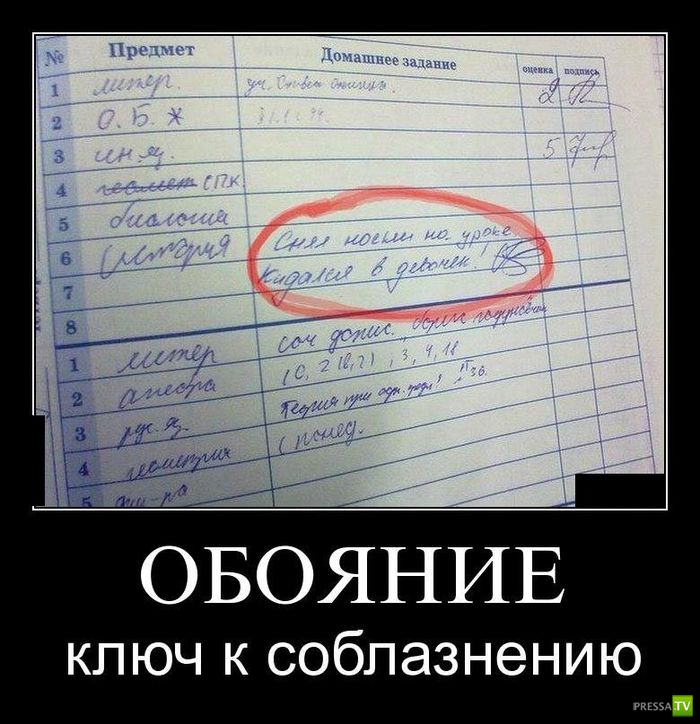 № Предмет Домашнее задание оценка подпись
1 литер. уч. 2
2 О.Б.Ж
3 ин.яз. 5
4 геомет СПК
5 биология
6 история Снял носки на уроке
7 Кидался в девочек!
8
1 литер соч допис.
2 алгебра 3, 4, 18
3 рус. яз. Теория при
4 геометрия
5
ОБОЯНИЕ
ключ к соблазнению
PRESSA.TV